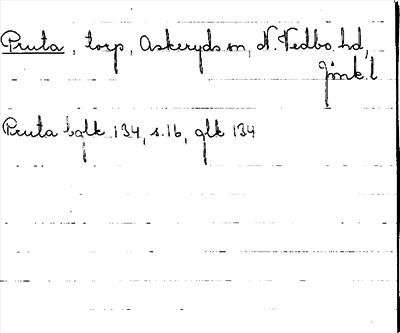 Pruta, torp, Askeryds sn, N. Vedbo hd,
Jönk. l
Pruta bglk 134, s. 16, glk 134